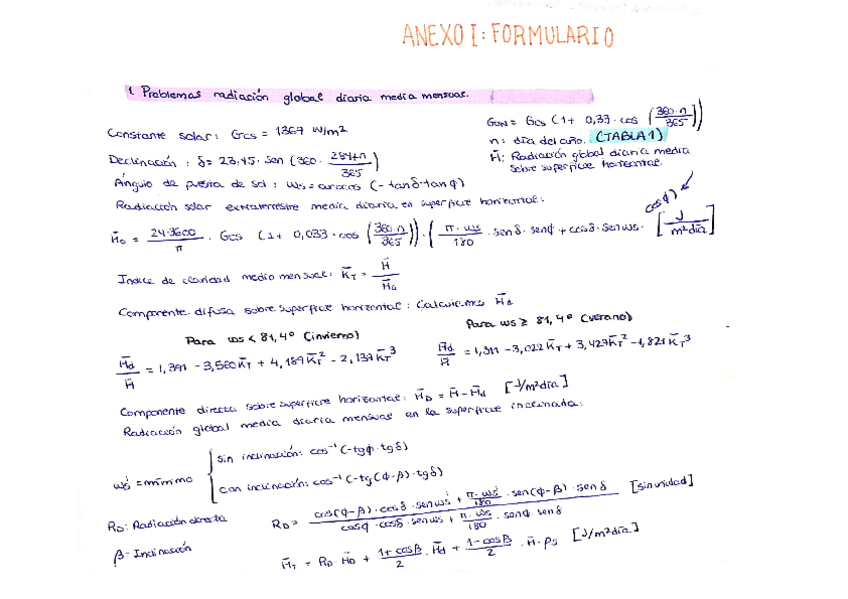 ANEXO I: FORMULARIO
1. Problemas radiación global diaria media mensual.
Constante solar: Gcs = 1367 W/m²
Gon = Gcs (1 + 0,33 · cos (360·n/365))
n: día del año. (TABLA 1)
H̄: Radiación global diaria media
sobre superficie horizontal.
Declinación: δ = 23,45 · sen (360 · 284+n/365)
Ángulo de puesta de sol: ws = arccos (-tanδ·tanφ)
Radiación solar extraterrestre media diaria en superficie horizontal:
cosφ)
H̄o = 24·3600/π · Gcs (1 + 0,033 · cos (360·n/365)) · (π·ws/180 · senδ · senφ + cosδ · senws · [J/m²día]
Indice de claridad medio mensual: K̄T = H̄/H̄o
Componente difusa sobre superficie horizontal: Calculamos H̄d
Para ws < 81,4° (invierno)
Para ws ≥ 81,4° (verano)
H̄d/H̄ = 1,391 - 3,560K̄T + 4,189K̄T² - 2,137K̄T³
H̄d/H̄ = 1,311 - 3,022K̄T + 3,427K̄T² - 1,821K̄T³
Componente directa sobre superficie horizontal: H̄D = H̄ - H̄d [J/m²día]
Radiación global media diaria mensual en la superficie inclinada:
ws' = mínimo
sin inclinación: cos⁻¹(-tgφ·tgδ)
con inclinación: cos⁻¹(-tg(φ-β)·tgδ)
RD: Radiación directa
RD = cos(φ-β)·cosδ·senws' + π·ws'/180 · sen(φ-β)·senδ / cosφ·cosδ·senws + π·ws/180 · senφ·senδ [sin unidad]
β- Inclinación
H̄T = RD · H̄D + 1+cosβ/2 · H̄d + 1-cosβ/2 · H̄ · ρs [J/m²día]